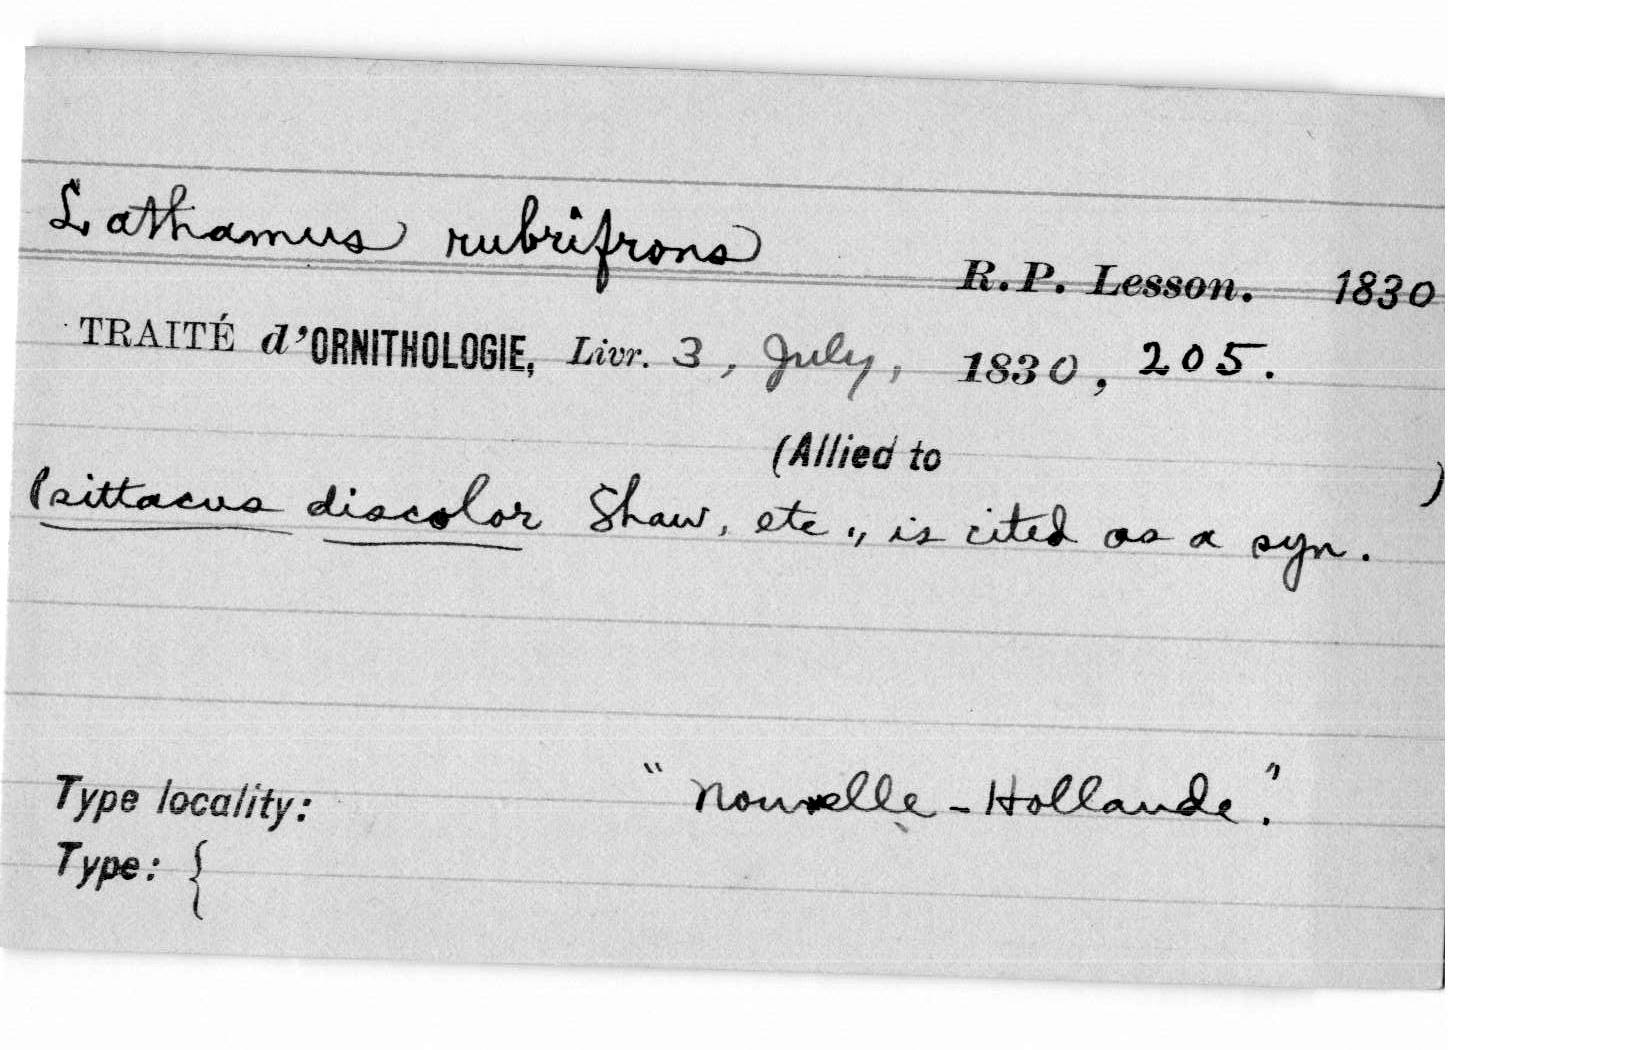 Lathamus rubrifrons
R.P. Lesson. 1830
TRAITÉ d'ORNITHOLOGIE, Livr. 3, July, 1830, 205.
(Allied to )
Psittacus discolor Shaw, etc., is cited as a syn.
Type locality: "Nouvelle-Hollande".
Type: {